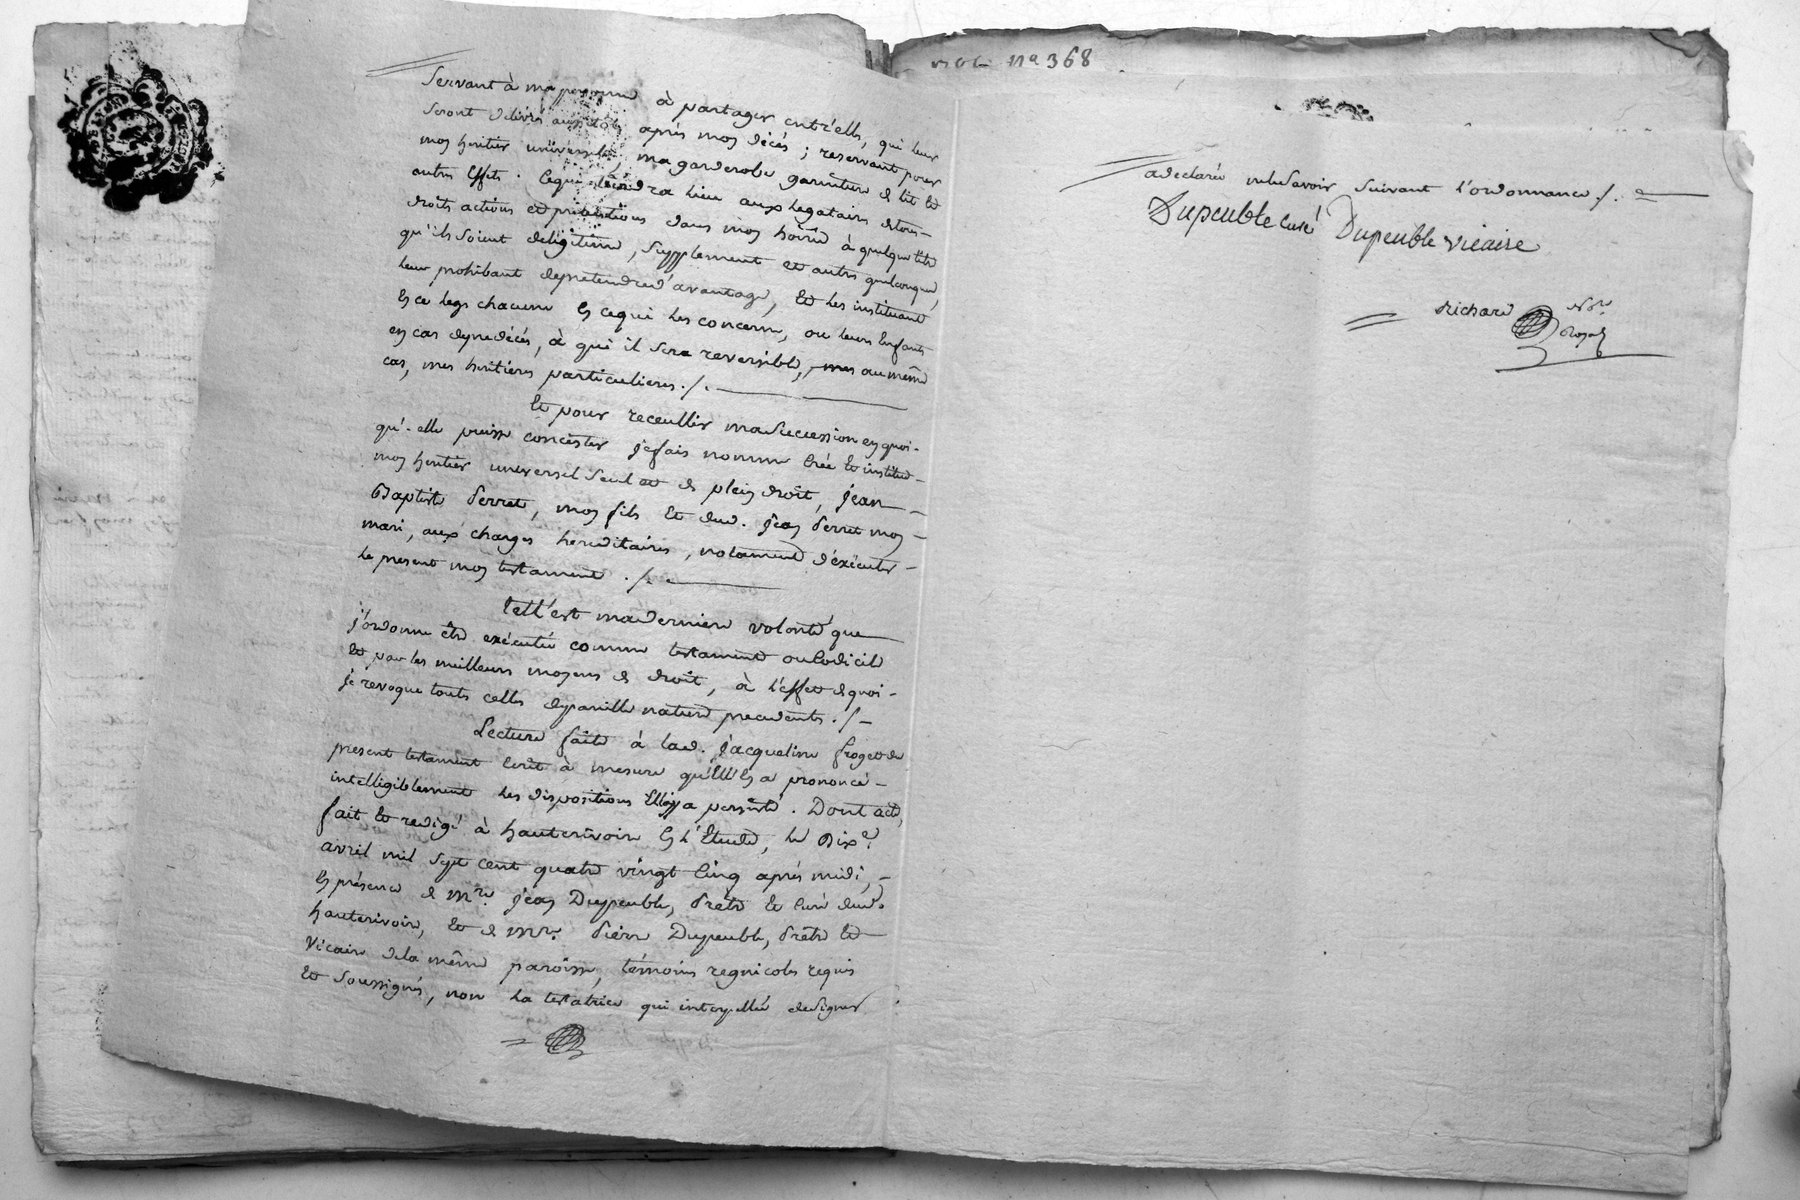 Servant à ma personne à partager entr'elles, qui leur
seront délivrés aussitôt après mon décés ; reservant pour
mon heritier universel, ma garderobe garniture de lit et
autres Effets. Ce qui tiendra lieu aux legataires de tous
droits actions et pretentions dans mon hoirie à quelque titre
qu'ils soient de légitime, suppplement et autres quelconques,
leur prohibant de pretendre d'avantage, Et les instituant
En ce legs chacune En ce qui les concerne, ou leurs Enfants
en cas de predécés, à qui il sera reversible, mes au même
cas, mes heritieres particulieres ./. 
Et pour receullir ma Succession en quoi-
qu'-elle puisse concister je fais nomme Crée Et institue
mon heritier universel seul et de plein droit, jean
Baptiste Perret, mon fils Et dud. jean Perret mon
mari, aux charges hereditaires, notament d'exécuter
le present mon testament ./.
Tell'est ma derniere volonté que
j'ordonne être exécutée comme testament ou Codicile
Et par les meilleurs moyens de droit, à l'effet de quoi
je revoque toutes celles de pareille nature precedentes ./.
Lecture faite à lad. jacqueline froget du
present testament Ecrit à mesure qu'Elle En a prononcé
intelligiblement les dispositions Elle y a persisté. Dont acte,
fait Et redigé à hauterivoire En l'Etude, le Dix
avril mil sept cent quatre vingt Cinq après midi,
En présence de Mre. jean Dupeuble, Prêtre Et Curé dud.
hauterivoire, Et de Mre. Pierre Dupeuble, Prêtre Et
Vicaire de la même paroisse, témoins regnicoles requis
Et soussignés, non la testatrice qui interpellée de signer
nº 368
a declaré ne le savoir suivant l'ordonnance ./.
Dupeuble curé Dupeuble vicaire
Richard Nre.
Royal